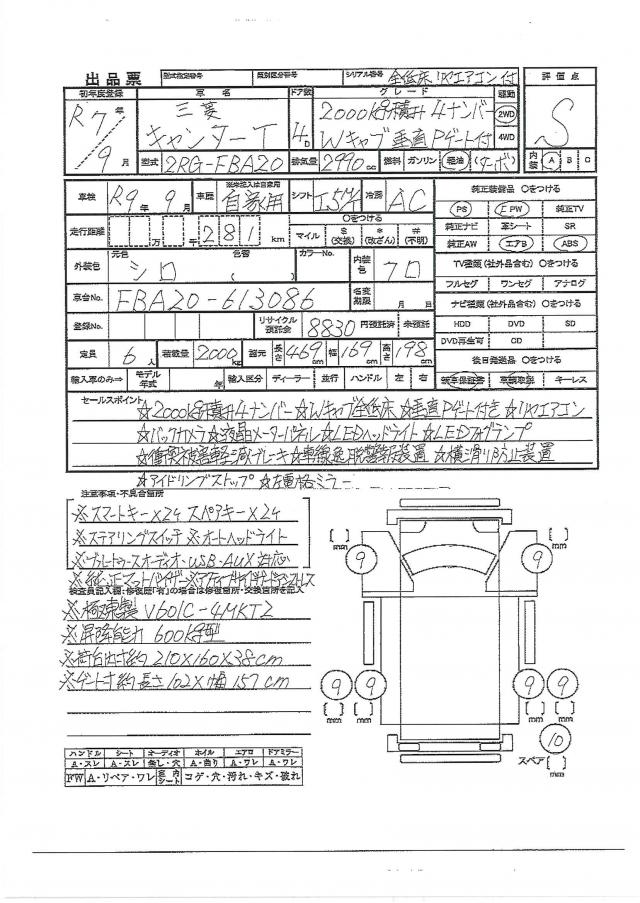 出品票 型式指定番号 類別区分番号 シリアル番号 全低床 リヤエアコン付
初年度登録 車名 ドア数 グレード 駆動 評価点
R7年 三菱 2000kg積み 4ナンバー 2WD S
9月 キャンターT 4D Wキャブ 垂直Pゲート付 4WD
型式 2RG-FBA20 排気量 2990cc 燃料 ガソリン 軽油 (ターボ) 内装 A B C
車検 R9年 9月 車歴 ※未記入は自家用 自家用 シフト I5M 冷房 AC 純正装備品 ○をつける
PS PW 純正TV
走行距離 万 千 281km ○をつける マイル $(交換) *(改ざん) #(不明)
純正ナビ 革シート SR
純正AW エアB ABS
外装色 元色 シロ 色替 ( ) カラーNo. 内装色 クロ
TV種類(社外品含む) ○をつける
フルセグ ワンセグ アナログ
車台No. FBA20-613086 名変期限 月 日
ナビ種類(社外品含む) ○をつける
登録No. リサイクル預託金 8830円預託済 未預託
HDD DVD SD
DVD再生可 CD
定員 6人 積載量 2000kg 諸元 長さ 469cm 幅 169cm 高さ 198cm
後日発送品 ○をつける
輸入車のみ⇒ モデル年式 年 輸入区分 ディーラー 並行 ハンドル 左 右
新車保証書 車輌取説 キーレス
セールスポイント
☆2000kg積み4ナンバー☆Wキャブ全低床☆垂直Pゲート付き☆リヤエアコン
☆バックカメラ☆液晶メーターパネル☆LEDヘッドライト☆LEDフォグランプ
☆衝突被害軽減ブレーキ☆車線逸脱警報装置☆横滑り防止装置
☆アイドリングストップ☆左電格ミラー
注意事項・不具合箇所
※スマートキー×2ケ スペアキー×2ケ
※ステアリングスイッチ ※オートヘッドライト
※ブルートゥースオーディオ・USB・AUX対応
※純正マットバイザー※アクティブサイドガードアシスト
検査員記入欄:修復歴「有」の場合は修復箇所・交換箇所を記入
※極東製 V601C-4MKT2
※昇降能力 600kg型
※荷台内寸約210×160×38cm
※ゲート寸約長さ102×幅157cm
ハンドル シート オーディオ ホイル エアロ ドアミラー
A・スレ A・スレ 無し・穴 A・曲り A・ワレ A・ワレ
FW A・リペア・ワレ 室内シート コゲ・穴・汚れ・キズ・破れ
mm 9 9 mm
9 9 9 9
mm mm mm mm
10
スペア mm